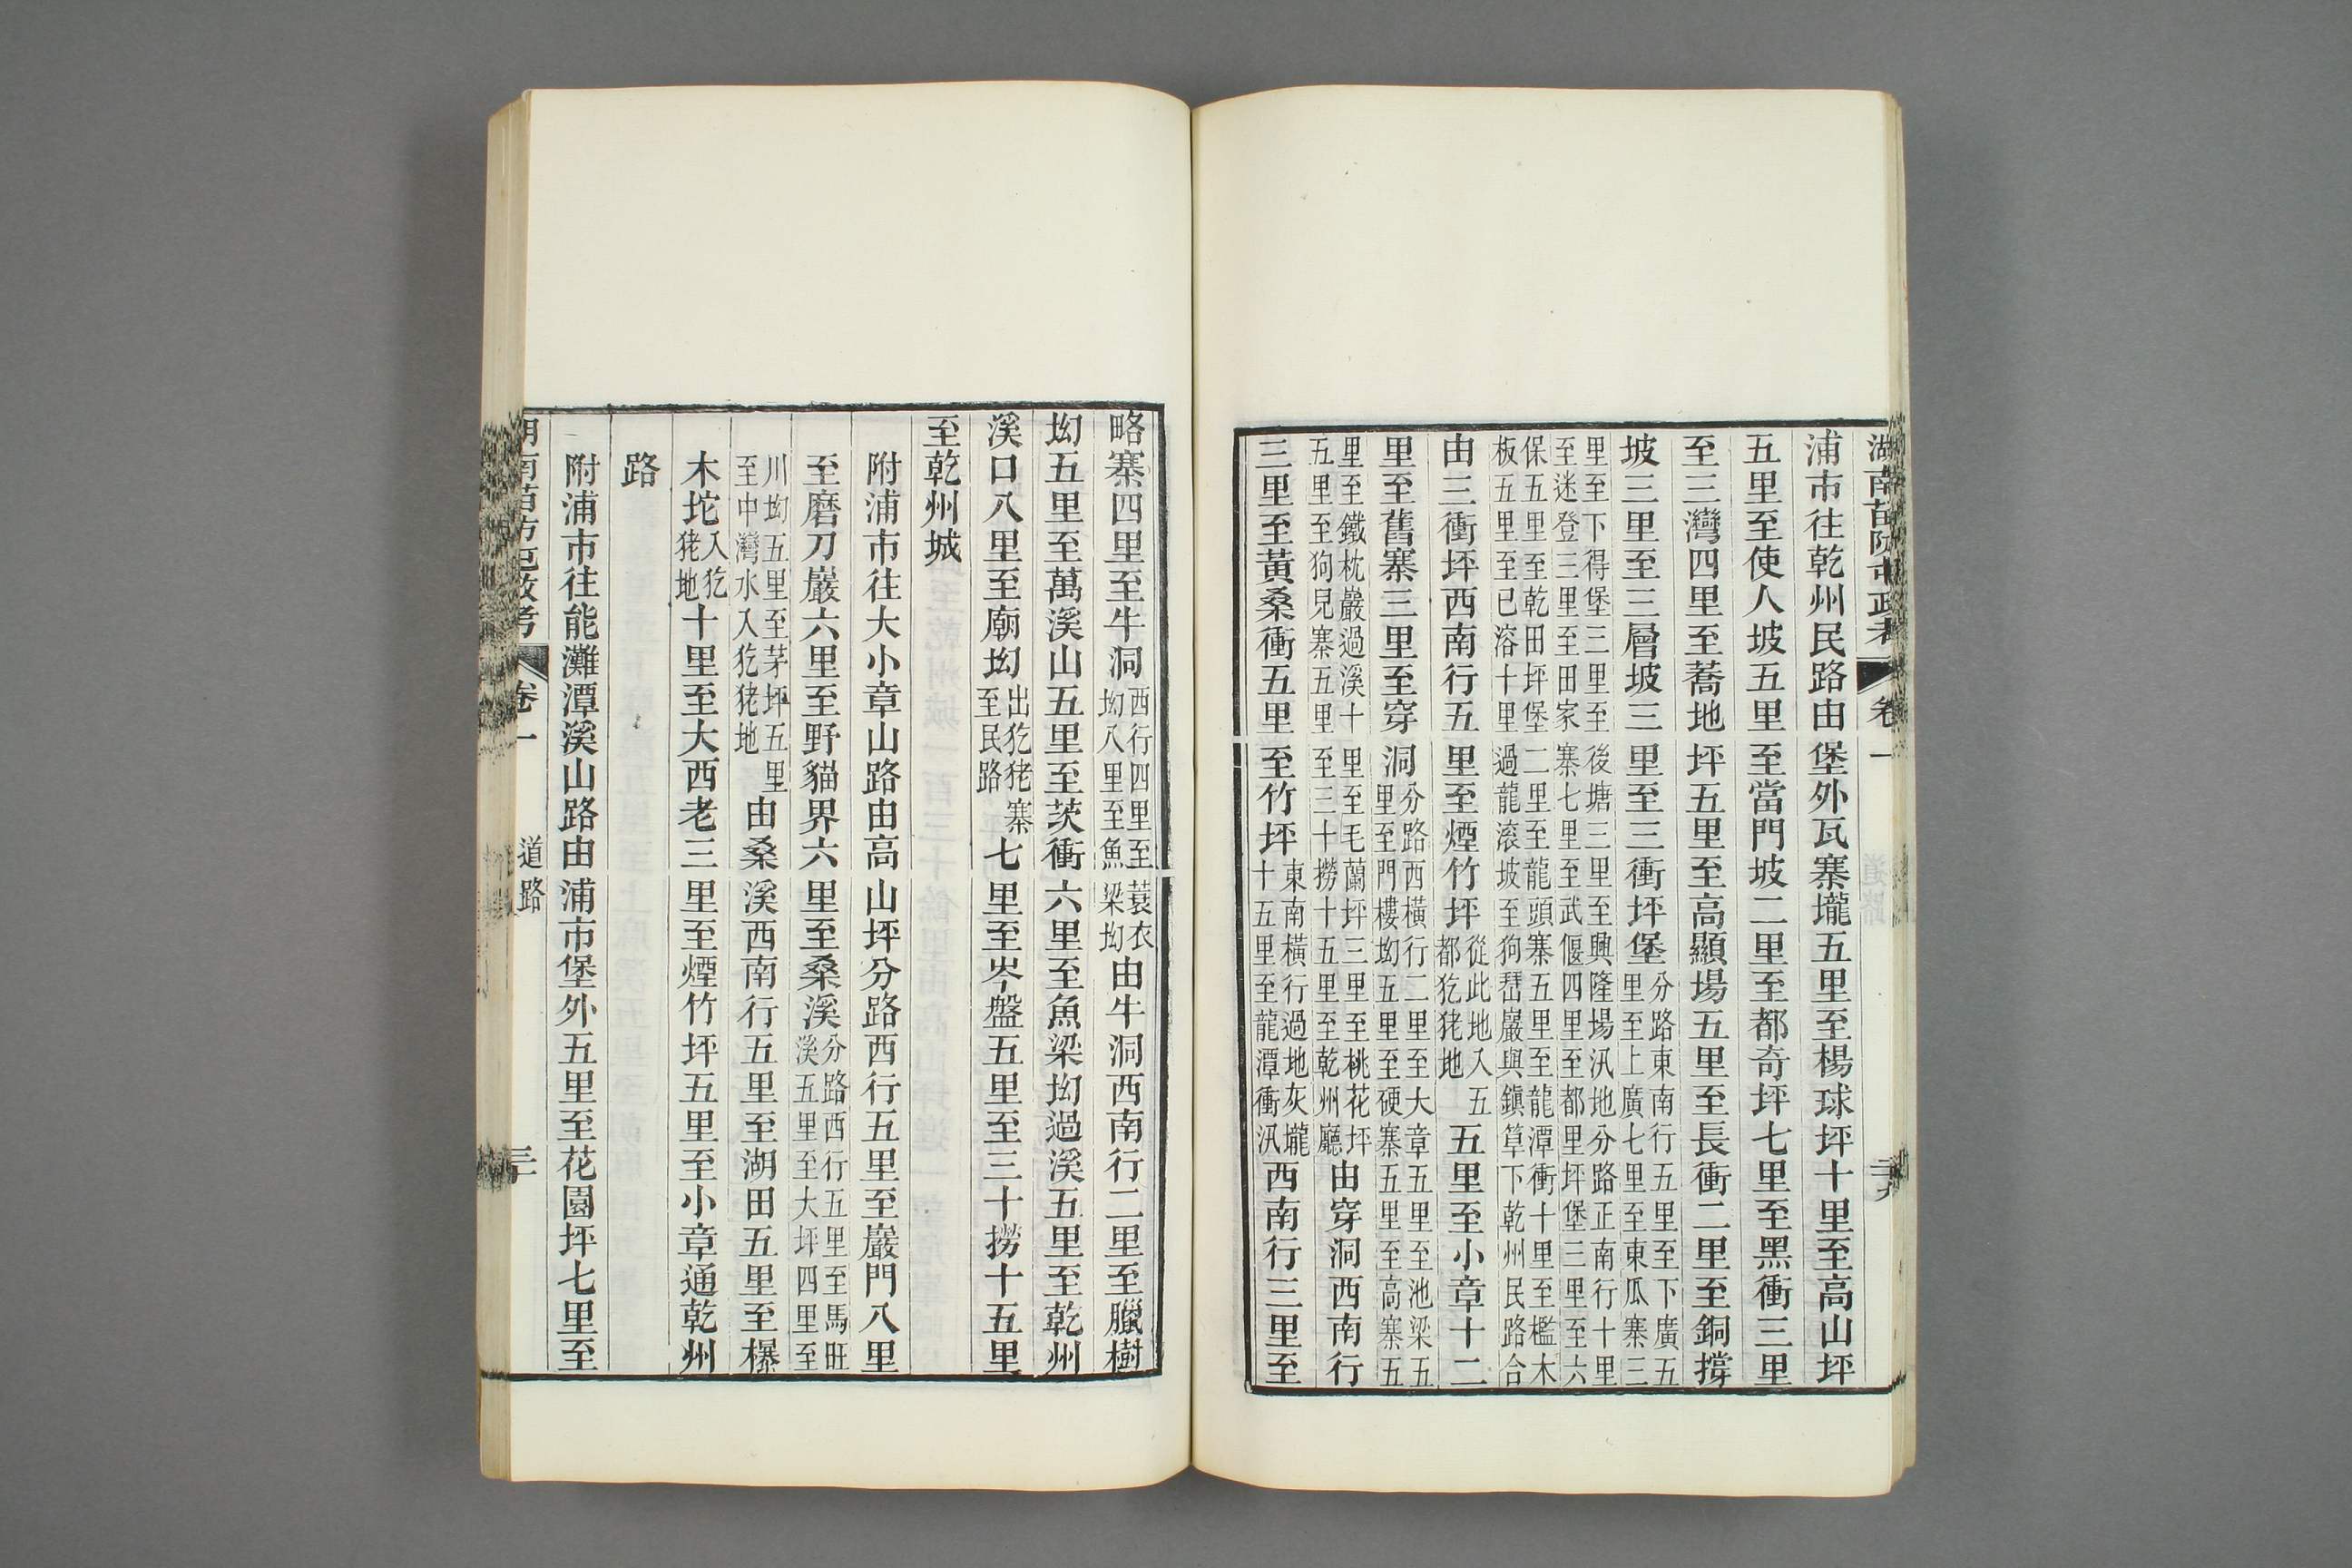 湖南苗防屯政考
卷一
浦市往乾州民路由堡外瓦寨壠五里至楊球坪十里至高山坪
五里至使人坡五里至當門坡二里至都奇坪七里至黑衝三里
至三灣四里至蕎地坪五里至高顯場五里至長衝二里至銅撐
坡三里至三層坡三里至三衝坪堡
分路東南行五里至下廣五
里至上廣七里至東瓜寨三
里至下得堡三里至後塘三里至興隆場汛地分路正南行十里
至迷登三里至田家寨七里至武偃四里至都里坪堡三里至六
保五里至乾田坪堡二里至龍頭寨五里至龍潭衝十里至檻木
板五里至已溶十里過龍滾坡至狗嵒巖與鎮筸下乾州民路合
由三衝坪西南行五里至煙竹坪
從此地入五
都犵狫地
五里至小章十二
里至舊寨三里至穿洞
分路西橫行二里至大章五里至池梁五
里至門樓坳五里至硬寨五里至高寨五
里至鐵枕巖過溪十里至毛蘭坪三里至桃花坪
五里至狗兒寨五里至三十撈十五里至乾州廳
由穿洞西南行
三里至黃桑衝五里至竹坪
東南橫行過地灰壠
十五里至龍潭衝汛
西南行三里至
略寨四里至牛洞
西行四里至蓑衣
坳八里至魚梁坳
由牛洞西南行二里至臘樹
坳五里至萬溪山五里至茨衝六里至魚梁坳過溪五里至乾州
溪口八里至廟坳
出犵狫寨
至民路
七里至岑盤五里至三十撈十五里
至乾州城
附浦市往大小章山路由高山坪分路西行五里至巖門八里
至磨刀巖六里至野貓界六里至桑溪
分路西行五里至馬旺
溪五里至大坪四里至
川坳五里至茅坪五里
至中灣水入犵狫地
由桑溪西南行五里至湖田五里至㯷
木坨
入犵
狫地
十里至大西老三里至煙竹坪五里至小章通乾州
路
附浦市往能灘潭溪山路由浦市堡外五里至花園坪七里至
湖南苗防屯政考
卷一
道路